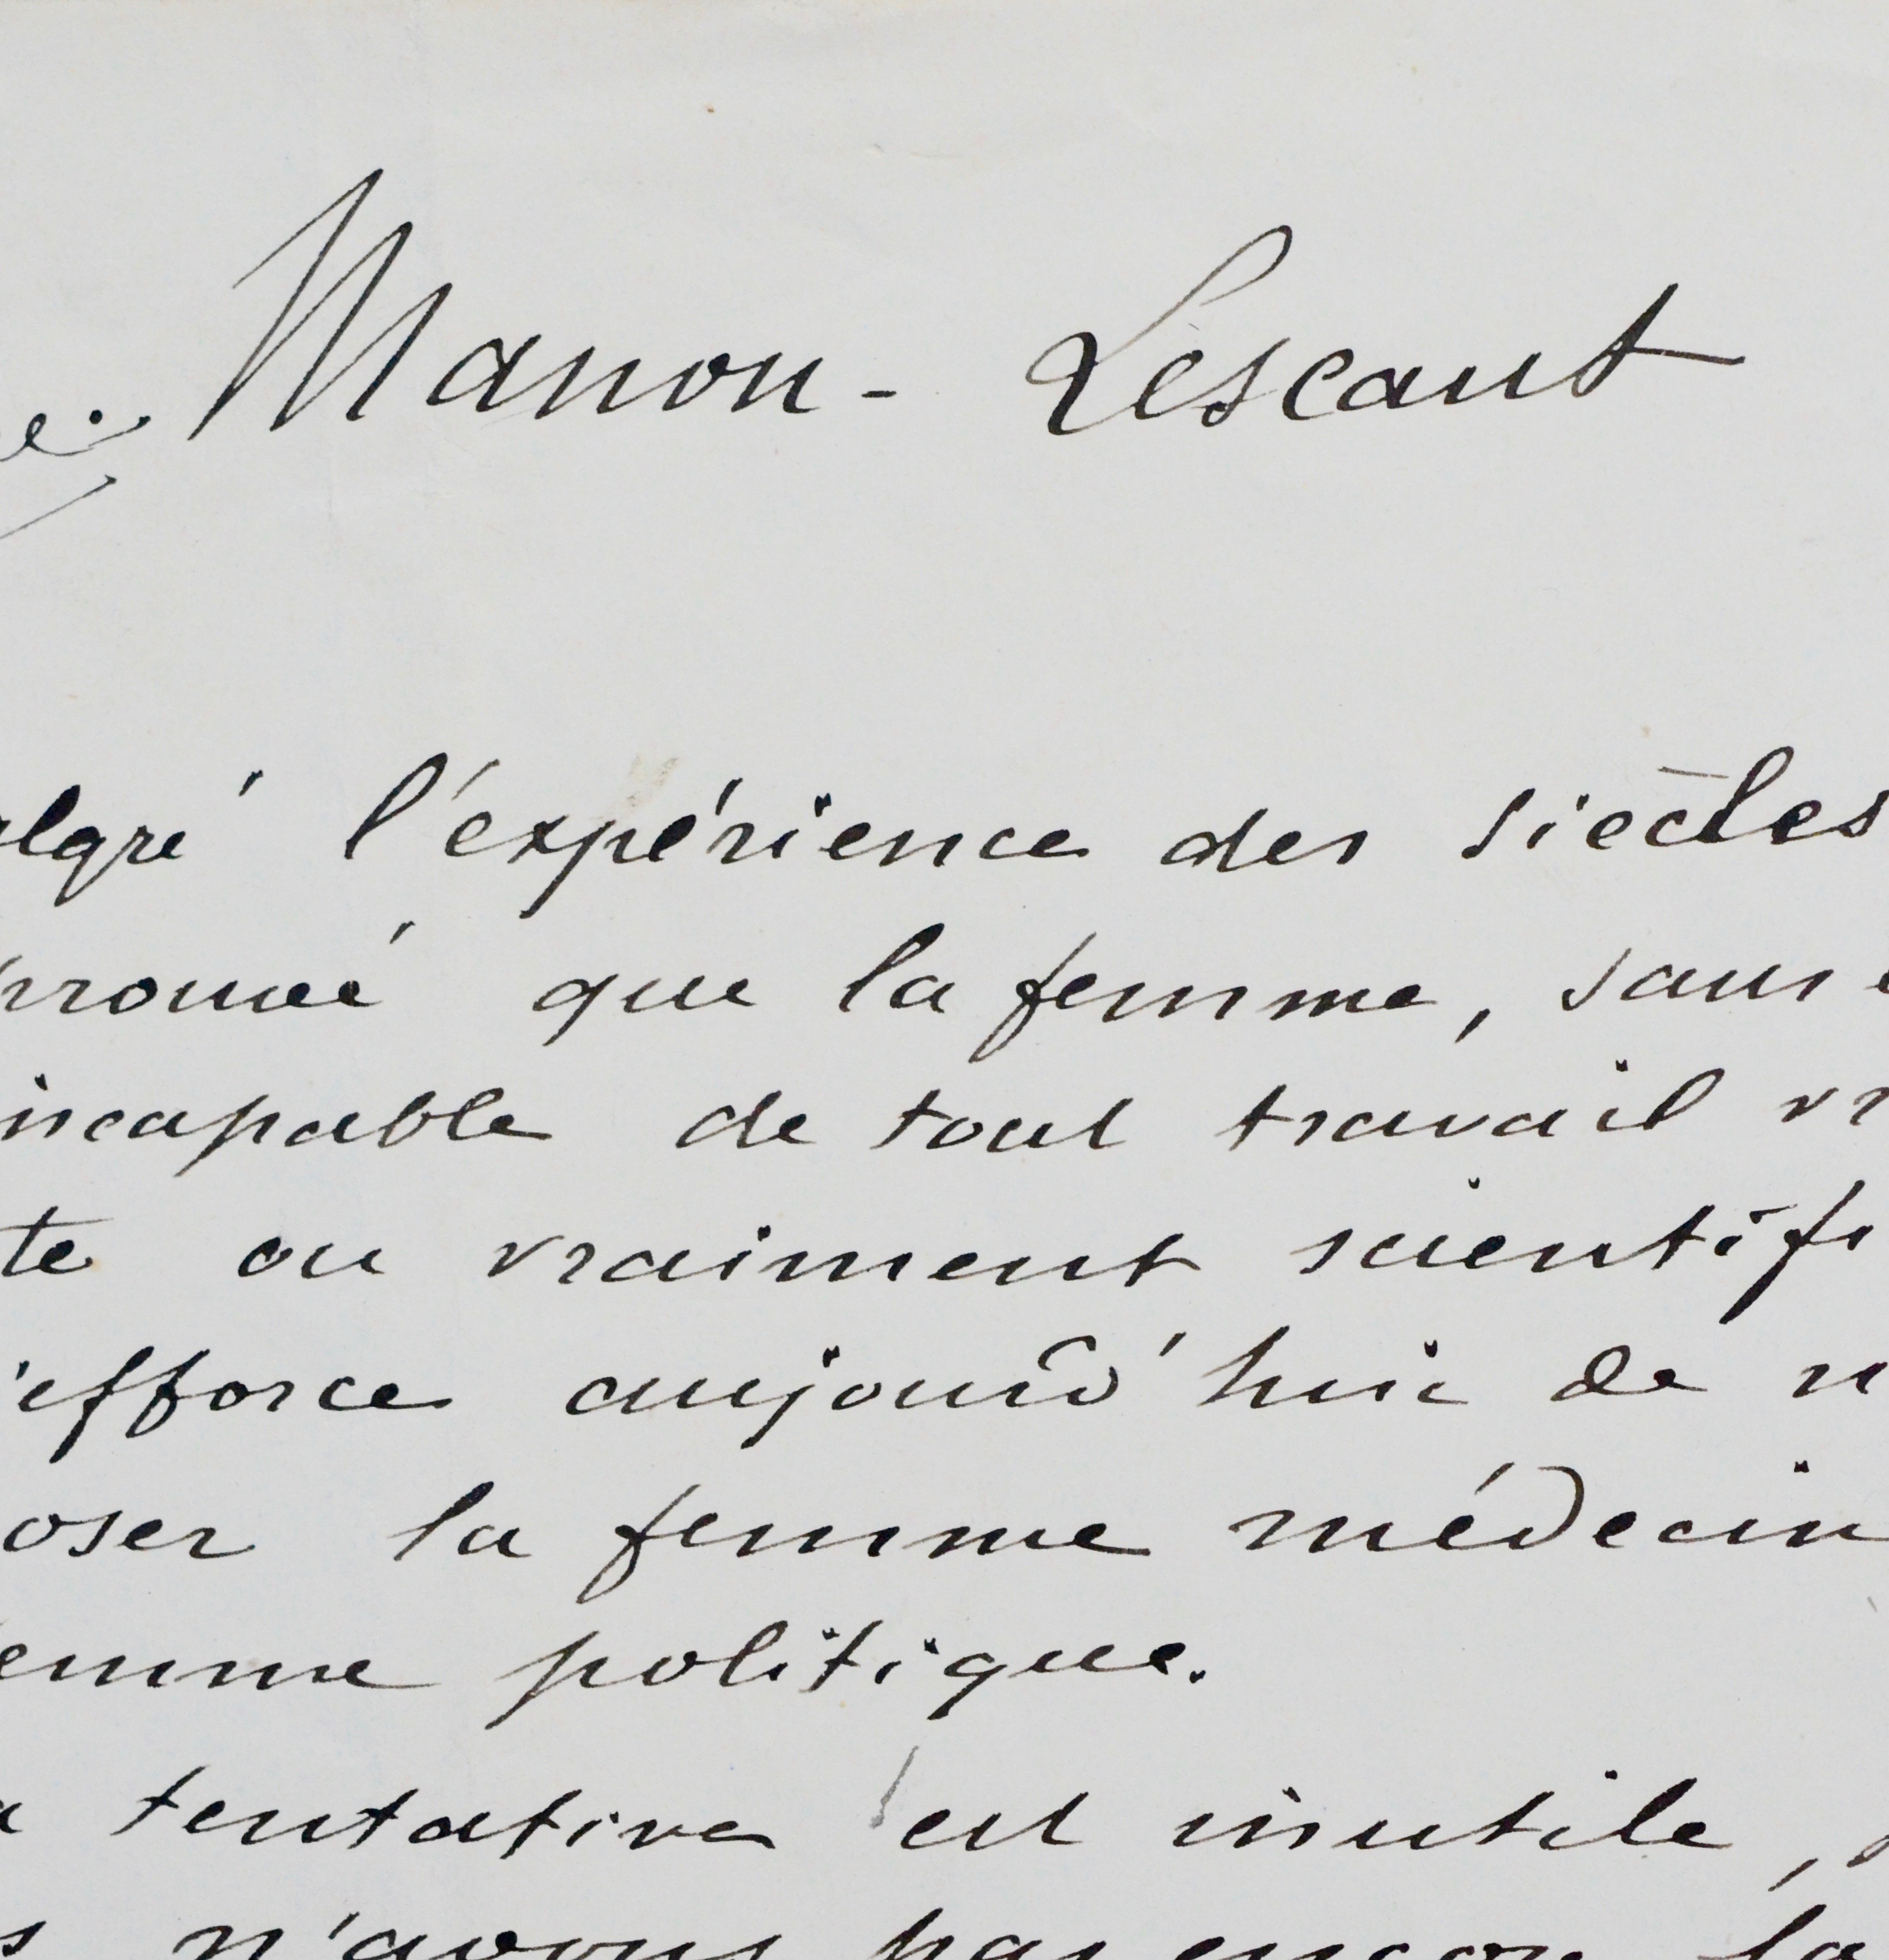 Manon - Lescaut
algré l'expérience des siècles
prouvé que la femme, sans e
incapable de tout travail vr
te ou vraiment scientifi
'efforce aujourd'hui de n
oser la femme médecin
emme politique.
a tentative est inutile,
s n'avons pas encore la